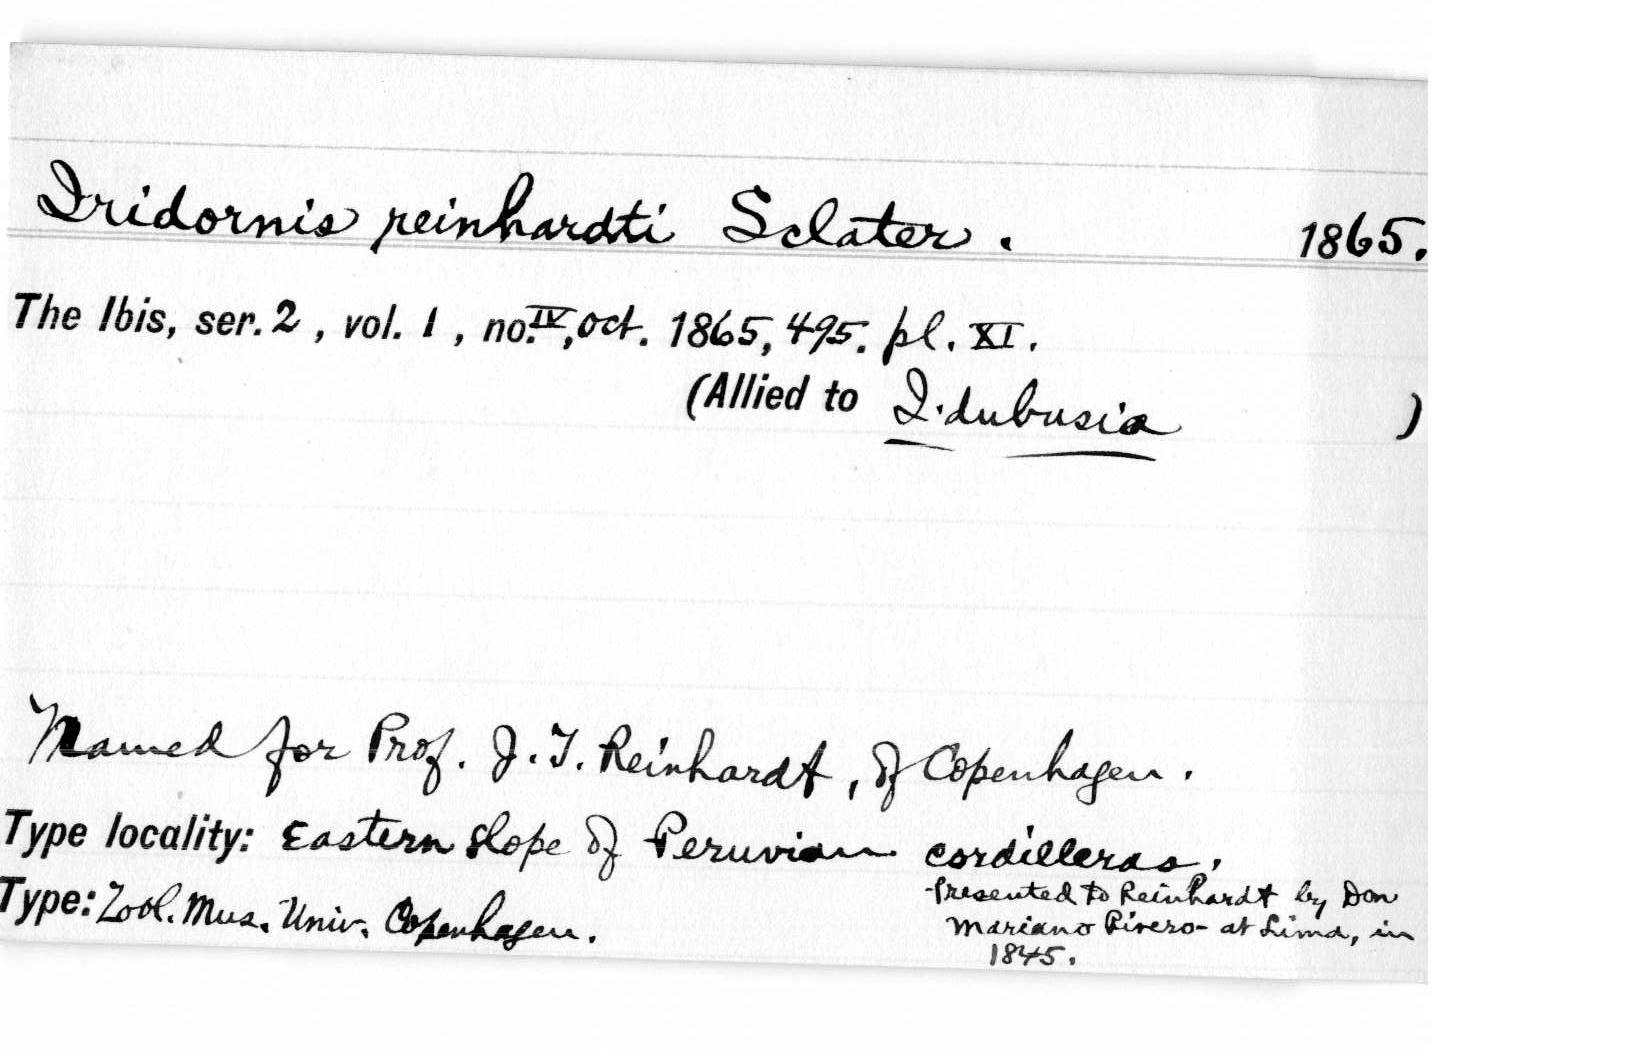 Iridornis reinhardti Sclater. 1865.
The Ibis, ser. 2, vol. 1, no. IV, oct. 1865, 495. pl. XI.
(Allied to I. dubusia )
Named for Prof. J. T. Reinhardt, of Copenhagen.
Type locality: Eastern slope of Peruvian cordilleras.
Type: Zool. Mus. Univ. Copenhagen.
Presented to Reinhardt by Don
Mariano Rivero - at Lima, in
1845.